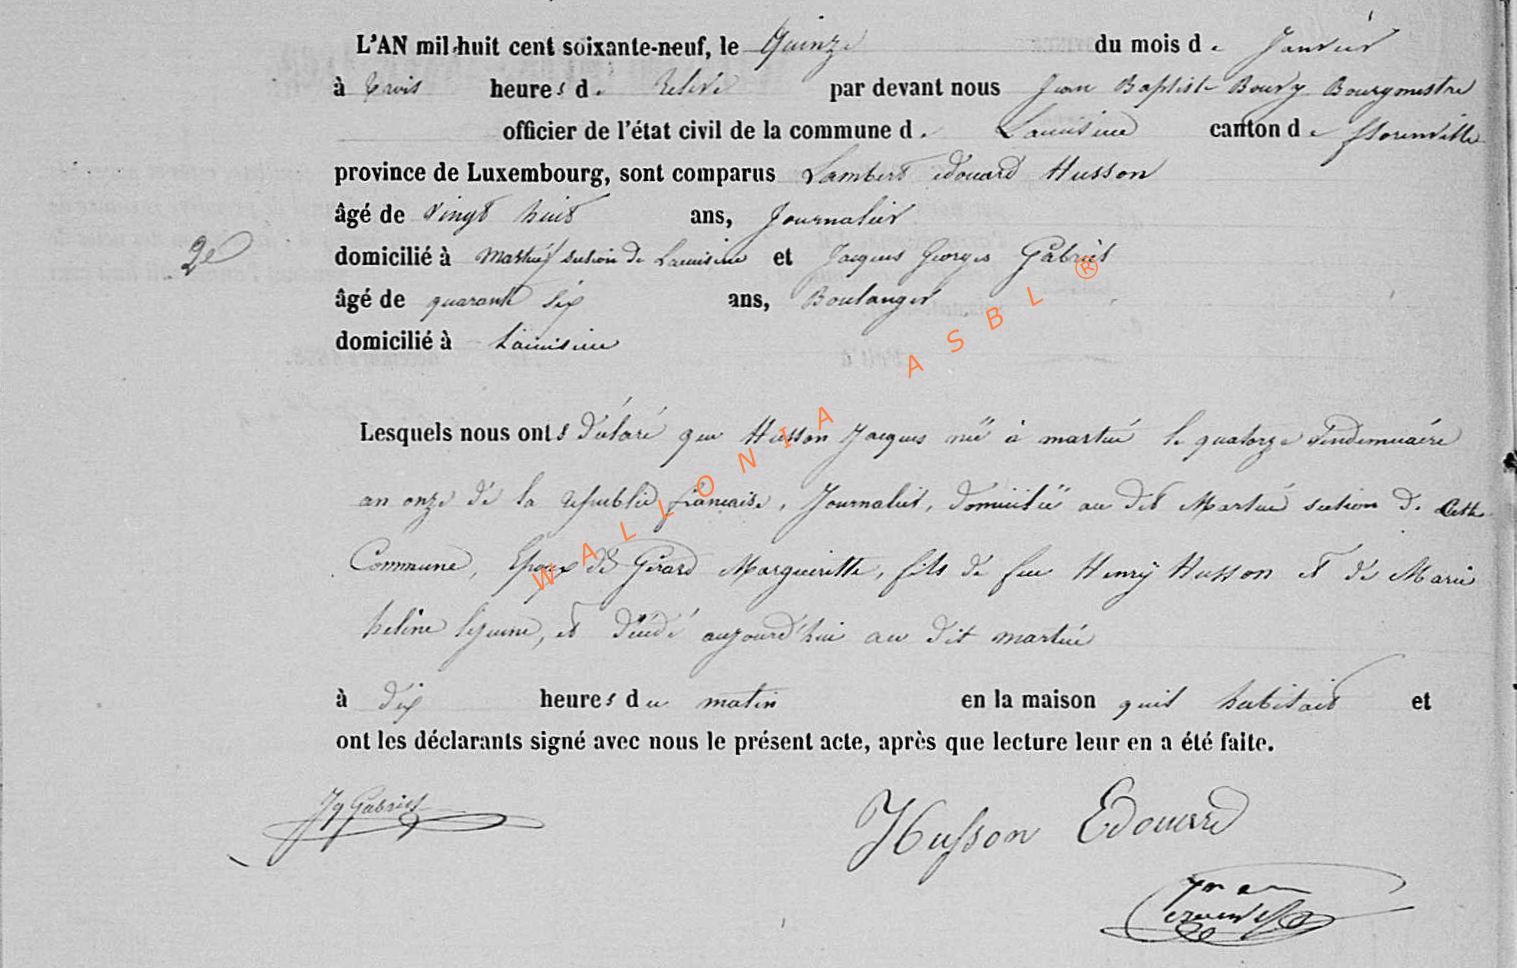 L'AN mil-huit cent soixante-neuf, le Quinze du mois de Janvier
à trois heures de relevé par devant nous Jean Baptiste Boury Bourgmestre
officier de l'état civil de la commune de Lacuisine canton de florenville
province de Luxembourg, sont comparus Lambert édouard Husson
âgé de vingt huit ans, Journalier
2e
domicilié à Martué section de Lacuisine et Jacques Georges Gabriel
âgé de quarante six ans, Boulanger
domicilié à Lacuisine
Lesquels nous onts déclaré que Husson Jacques né à martué le quatorze vendemiaére
an onze de la republic française, Journalier, domicilié au dit Martué section de cette
Commune, Epoux de Gérard Margueritte, fils de feu Henry Husson et de Marie
heline, et décédé aujourd'hui au dit martué
à dix heures du matin en la maison quil habitait et
ont les déclarants signé avec nous le présent acte, après que lecture leur en a été faite.
Jq Gabriel
Husson Edouard
WALLONIA ASBL ®